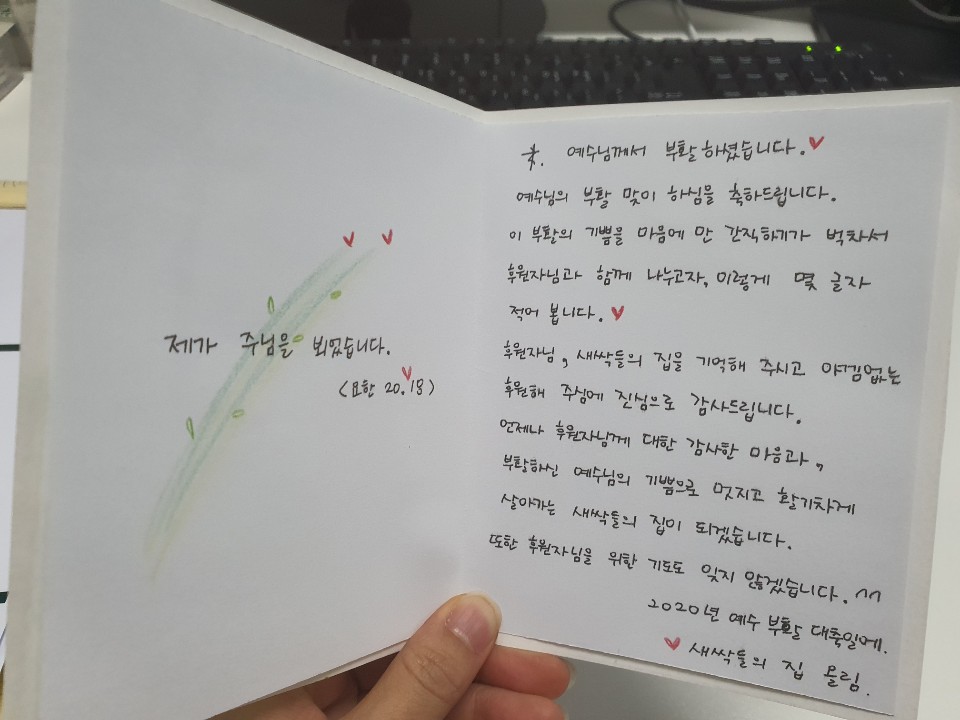 제가 주님을 뵈었습니다.
(요한 20.18)
*. 예수님께서 부활하셨습니다.♥
예수님의 부활 맞이 하심을 축하드립니다.
이 부활의 기쁨을 마음에 만 간직하기가 벅차서
후원자님과 함께 나누고자, 이렇게 몇 글자
적어 봅니다.♥
후원자님, 새싹들의 집을 기억해 주시고 아낌없는
후원해 주심에 진심으로 감사드립니다.
언제나 후원자님께 대한 감사한 마음과,
부활하신 예수님의 기쁨으로 멋지고 활기차게
살아가는 새싹들의 집이 되겠습니다.
또한 후원자님을 위한 기도도 잊지 않겠습니다. ^^
2020년 예수 부활 대축일에.
♥ 새싹들의 집 올림.